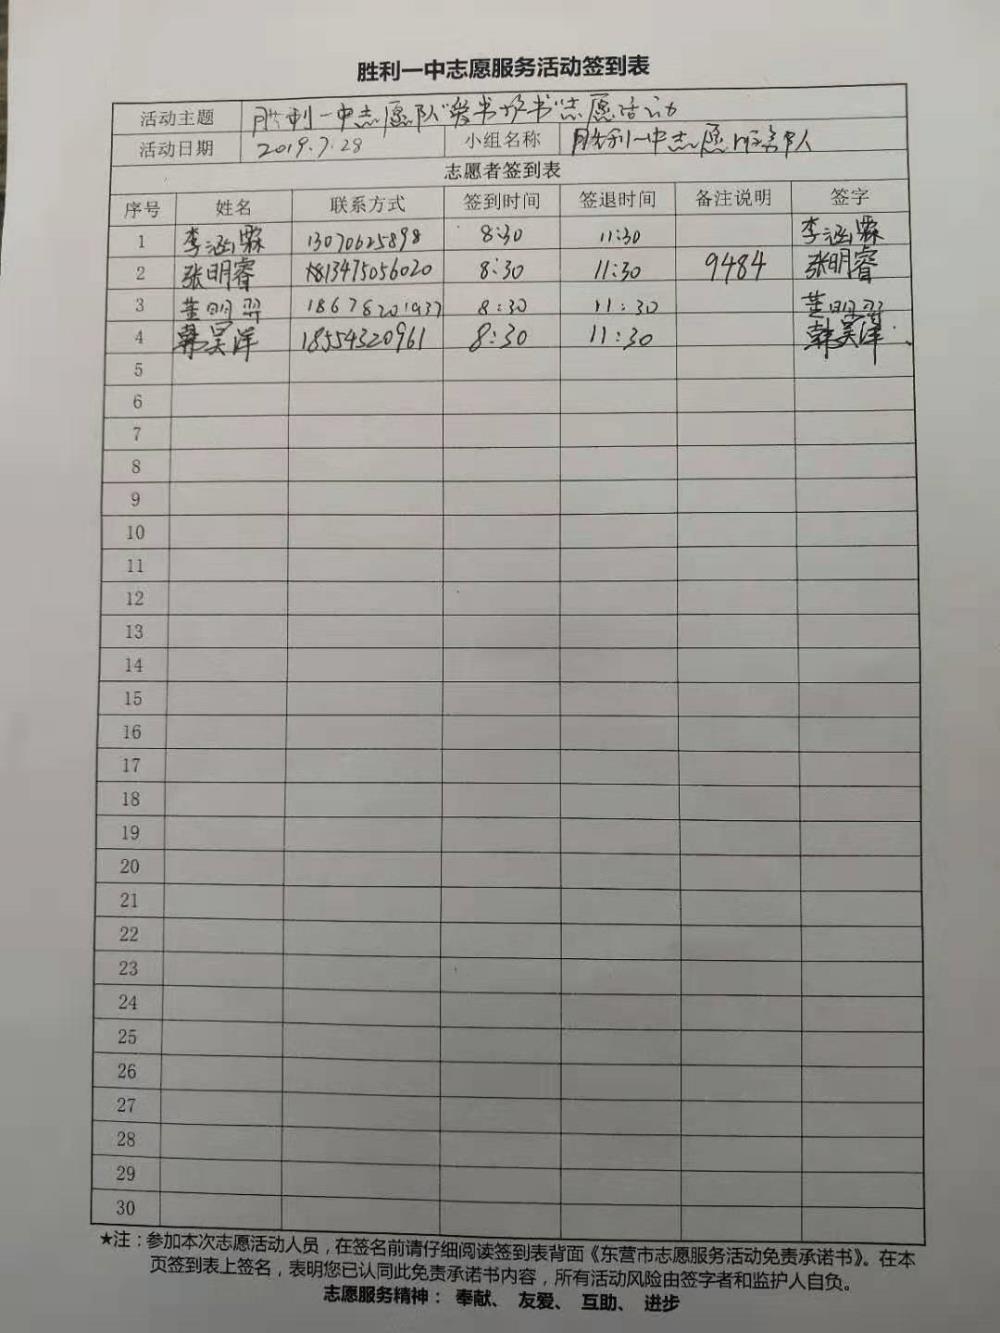 胜利一中志愿服务活动签到表
活动主题 胜利一中志愿队"爱书护书"志愿活动
活动日期 2019.7.28 小组名称 胜利一中志愿
志愿者签到表
序号 姓名 联系方式 签到时间 签退时间 备注说明 签字
1 李涵霖 13070625898 8:30 11:30 李涵霖
2 张明睿 13475056020 8:30 11:30 9484 张明睿
3 董明羿 18678201937 8:30 11:30 董明羿
4 韩昊洋 18554320961 8:30 11:30 韩昊洋
5
6
7
8
9
10
11
12
13
14
15
16
17
18
19
20
21
22
23
24
25
26
27
28
29
30
★注：参加本次志愿活动人员，在签名前请仔细阅读签到表背面《东营市志愿服务活动免责承诺书》。在本
页签到表上签名，表明您已认同此免责承诺书内容，所有活动风险由签字者和监护人自负。
志愿服务精神： 奉献、 友爱、 互助、 进步